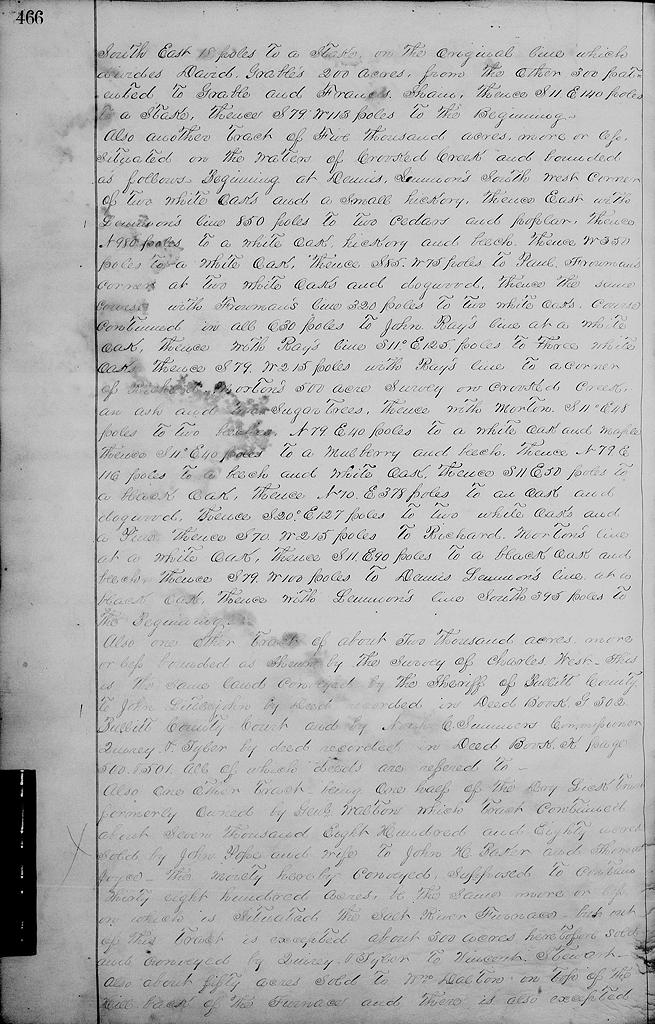 466
South East 18 poles to a Stake, on the Original line which
divides David Grable's 200 acres, from the other 500 pat-
ented to Grable and Francis Sham, thence S 11 E 140 poles
to a Stake, thence S 79 W 115 poles to the Beginning.
Also another Tract of Five thousand acres, more or less,
Situated on the waters of Crooked Creek and bounded
as follows Beginning at Dennis Lemmon's South West corner
of two white Oaks and a Small hickory, thence East with
Lemmon's line 850 poles to two cedars and poplar, thence
N 980 poles to a white Oak, hickory and beech. Thence W 350
poles to a white Oak, thence S 85. W 75 poles to Paul Frowman's
corner at two white Oaks and dogwood, thence the same
course with Frowman's line 320 poles to two white Oaks. Course
Continued in all 630 poles to John Ray's line at a white
Oak, thence with Ray's line S 11° E 125 poles to three white
Oaks thence S 79. W 215 poles with Ray's line to a corner
of Morton's 500 acre Survey on Crooked Creek,
an ash and two Sugar trees, thence with Morton S 11° E 48
poles to two beeches, N 79 E 40 poles to a white Oak and maple
thence S 11° E 40 poles to a Mulberry and beech, thence N 79 E
116 poles to a beech and white Oak, thence S 11 E 50 poles to
a black Oak, thence N 70. E 378 poles to an Oak and
dogwood, thence S 20° E 127 poles to two white Oaks and
a Pine thence S 70. W 215 poles to Richard Morton's line
at a white Oak, thence S 11. E 90 poles to a black Oak and
beech, thence S 79. W 100 poles to Dennis Lemmon's line at a
black Oak, thence with Lemmon's line South 395 poles to
the Beginning.
Also one other Tract of about Two thousand acres more
or less bounded as Shewn by the Survey of Charles West. This
is the same land conveyed by the Sheriff of Bullitt County
to John Littlejohn by Deed recorded in Deed Book G 302
Bullitt County Court and by C. Summers Commissioner
Quirey & Tyler by deed recorded in Deed Book K page
500 & 501. all of which deeds are referred to —
Also One Other Tract being One half of the Dry Lick Tract
formerly Owned by Genl. Walton which Tract Contained
about Seven thousand Eight Hundred and Eighty acres
Sold by John Pope and wife to John H. Baker and Thomas
Joyce — The moiety hereby Conveyed, Supposed to Contain
Thirty eight hundred acres, be the Same more or less
on which is Situated the Salt River Furnace but out
of this Tract is excepted about 500 acres heretofore Sold
and conveyed by Quirey & Tyler to Vincent Stewart.
Also about fifty acres Sold to Wm Dalton on top of the
Hill back of the Furnace and there is also excepted